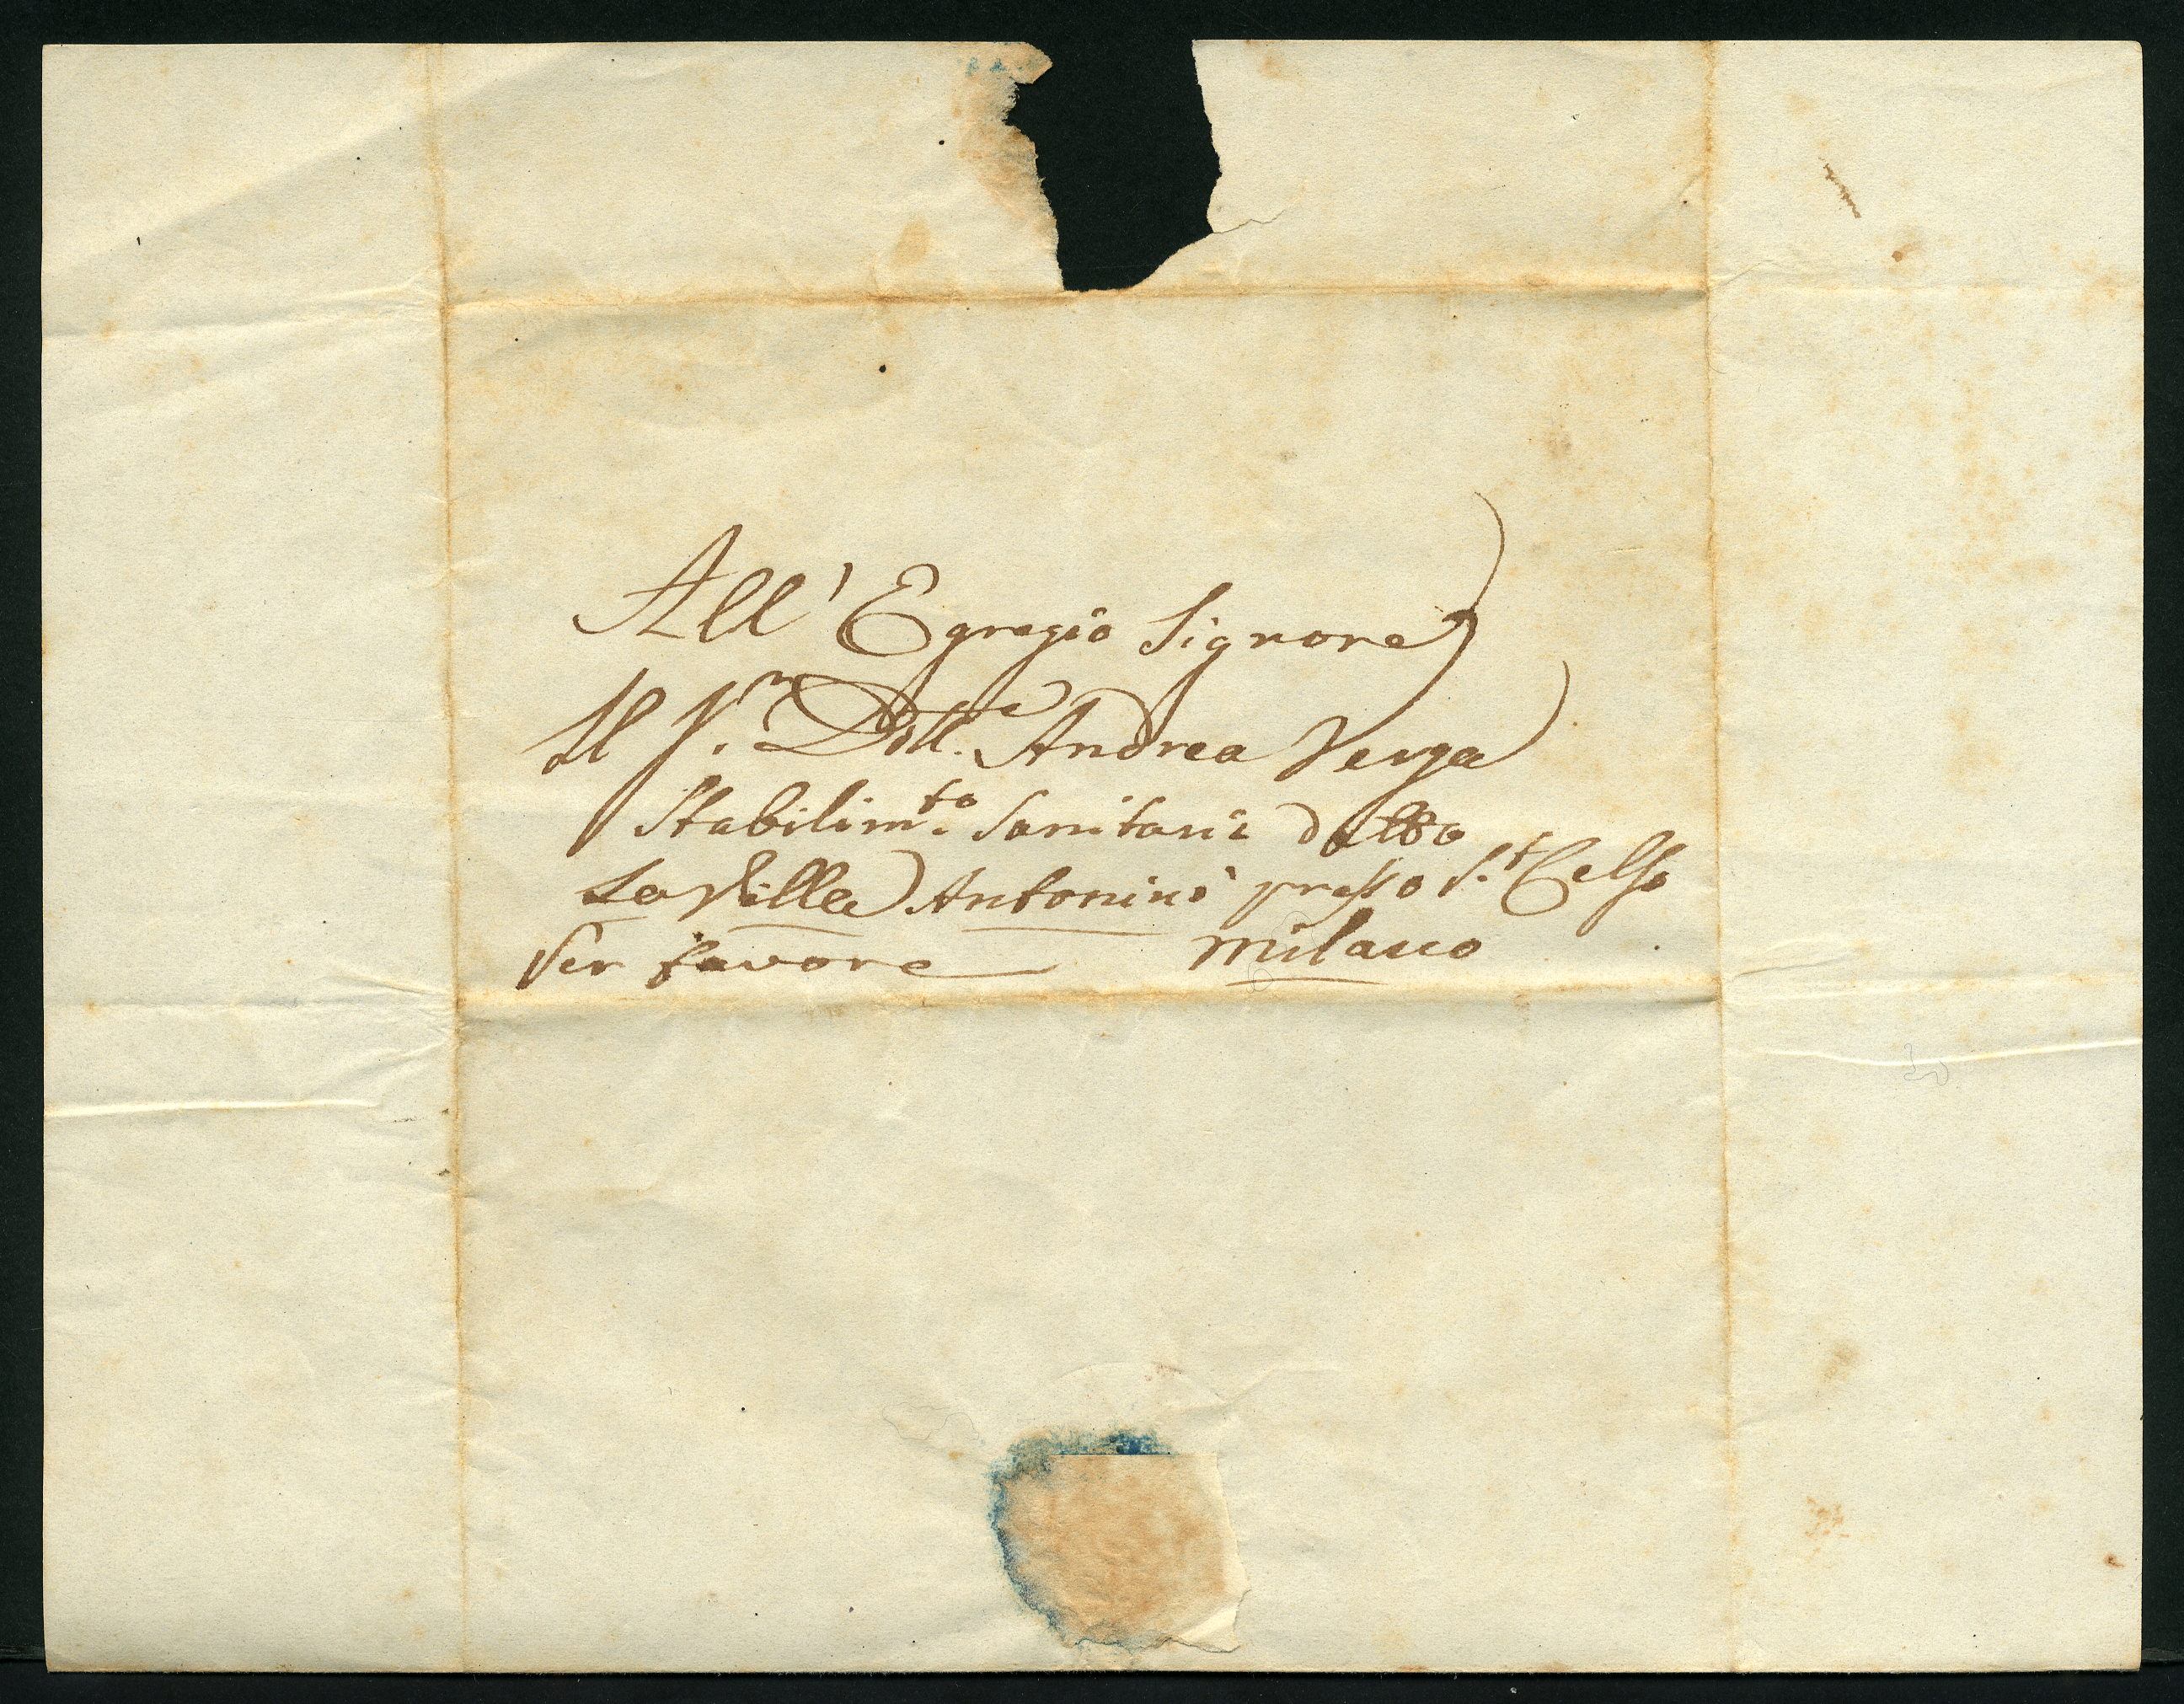 All' Egregio Signore
Il S.r Dott.e Andrea Verga
Stabilim.to Sanitario detto
La Villa Antonini presso S.t Celso
Per favore Milano